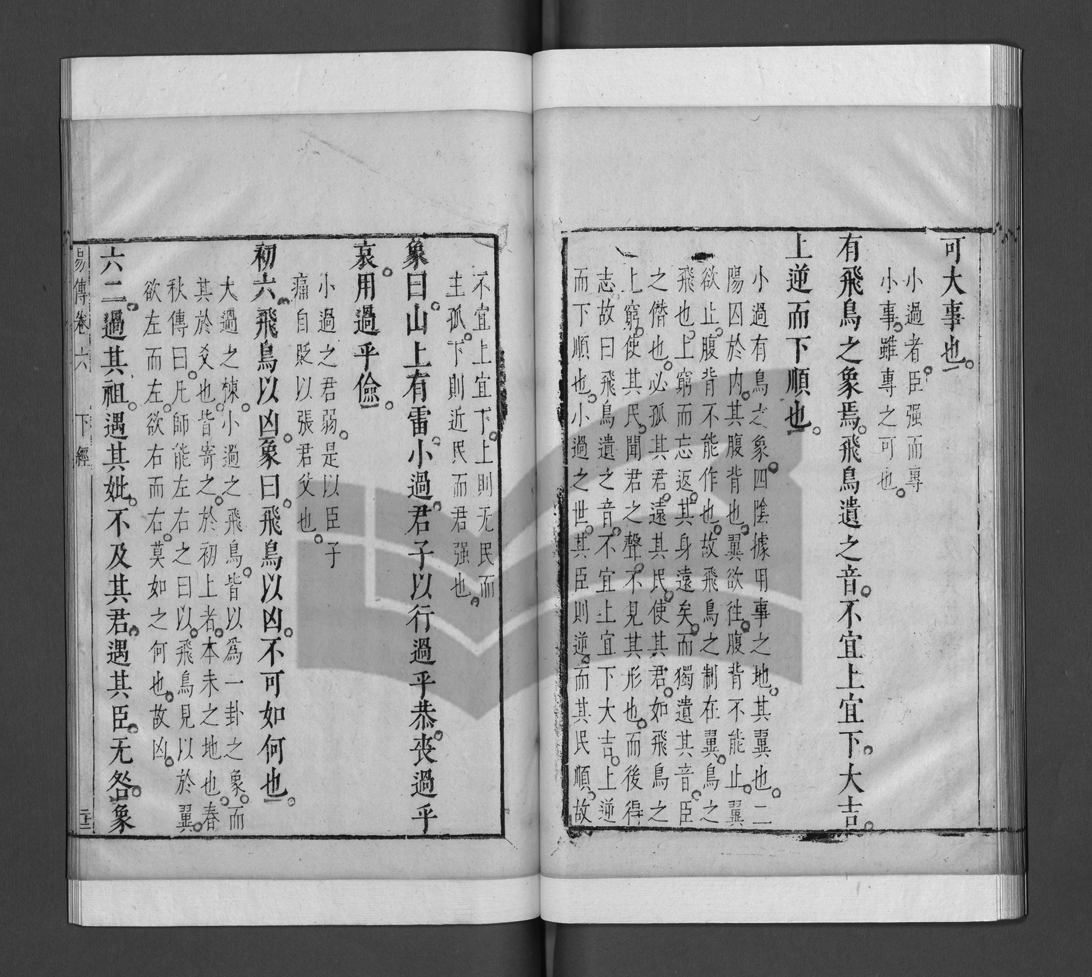 可大事也
小過者臣强而專
小事雖專之可也
有飛鳥之象焉飛鳥遺之音不宜上宜下大吉
上逆而下順也
小過有鳥之象四陰據用事之地其翼也二
陽囚於内其腹背也翼欲徃腹背不能止翼
欲止腹背不能作也故飛鳥之制在翼鳥之
飛也上窮而忘返其身遠矣而獨遺其音臣
之僭也必孤其君遠其民使其君如飛鳥之
上窮使其民聞君之聲不見其形也而後得
志故曰飛鳥遺之音不宜上宜下大吉上逆
而下順也小過之世其臣則逆而其民順故
不宜上宜下上則无民而
主孤下則近民而君强也
象曰山上有雷小過君子以行過乎恭喪過乎
哀用過乎儉
小過之君弱是以臣子
痛自貶以張君父也
初六飛鳥以凶象曰飛鳥以凶不可如何也
大過之棟小過之飛鳥皆以爲一卦之象而
其於爻也皆寄之於初上者本末之地也春
秋傳曰凡師能左右之曰以飛鳥見以於翼
欲左而左欲右而右莫如之何也故凶
六二過其祖遇其妣不及其君遇其臣无咎象
易傳卷六 下經